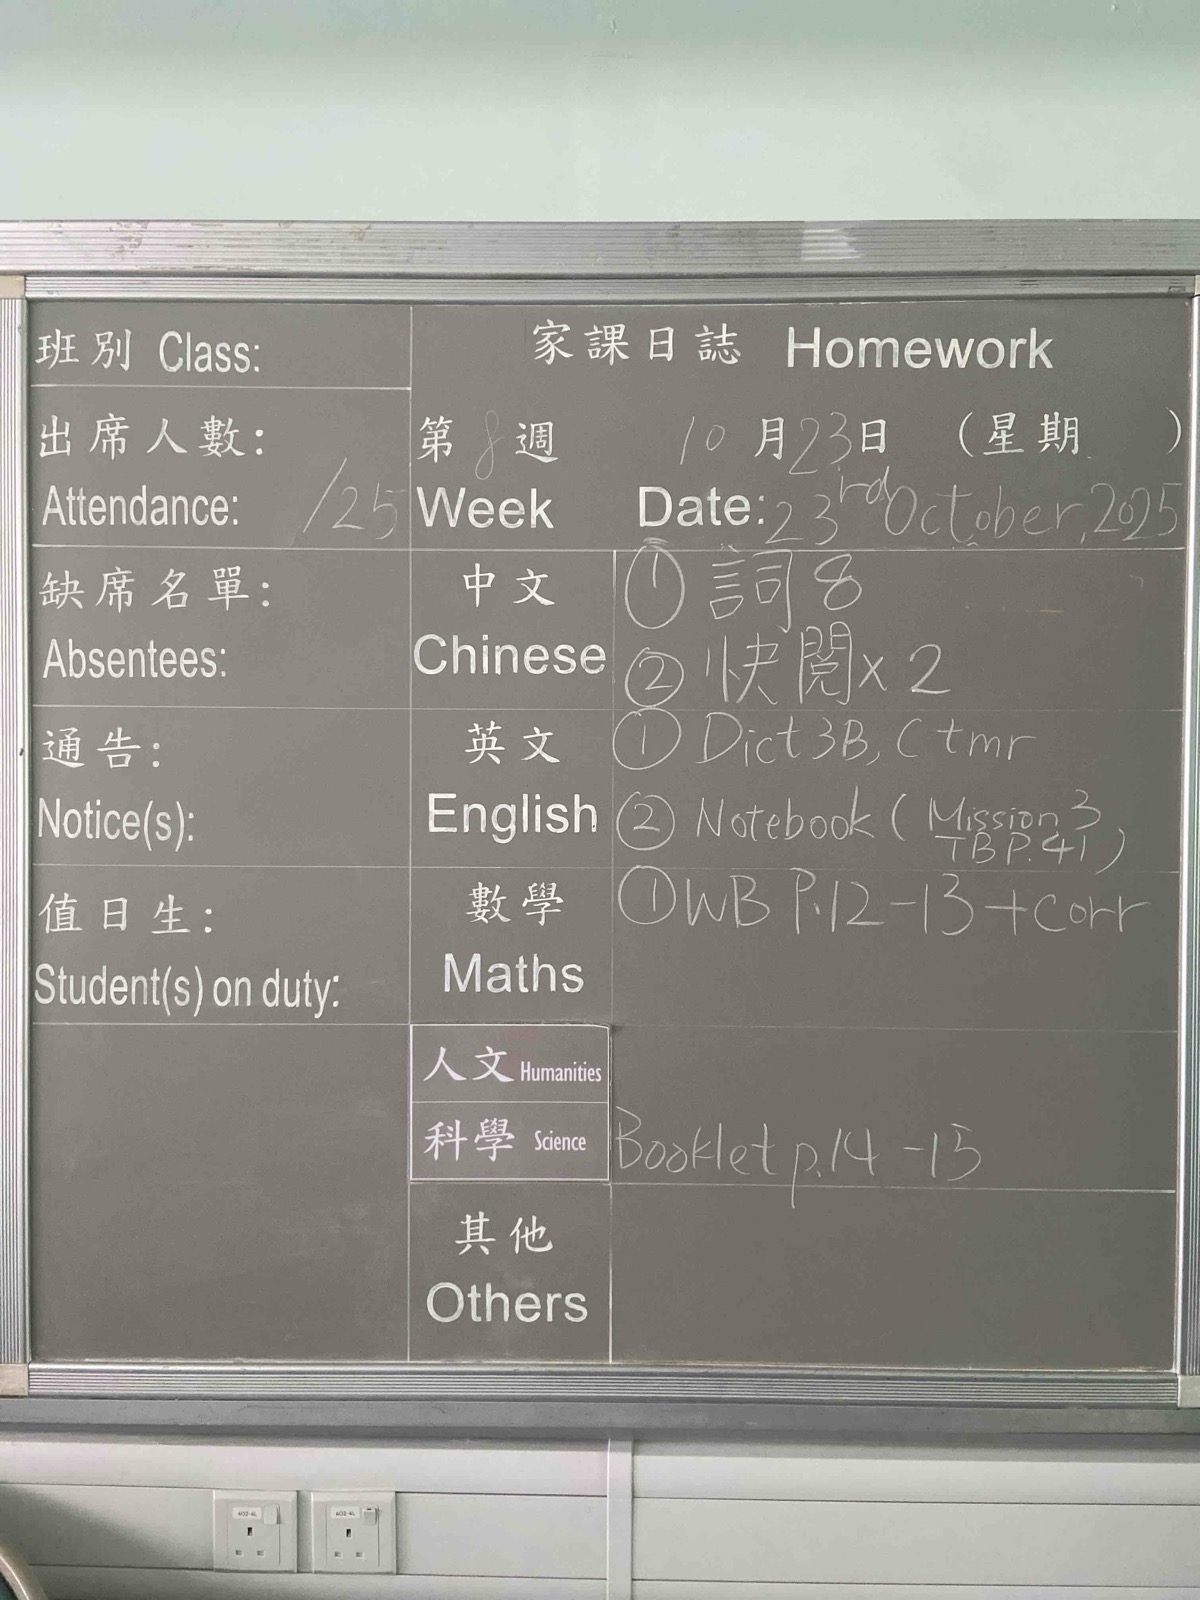 班別 Class:
家課日誌 Homework
出席人數:
Attendance: /25
第 8 週 10 月 23 日 (星期 )
Week Date: 23rd October, 2025
缺席名單:
Absentees:
中文
Chinese
① 詞 8
② 快閱 x 2
通告:
Notice(s):
英文
English
① Dict 3B, C tmr
② Notebook ( Mission 3,
TB P.41 )
值日生:
Student(s) on duty:
數學
Maths
① WB P.12-13 + corr
人文 Humanities
科學 Science
Booklet p.14 -15
其他
Others